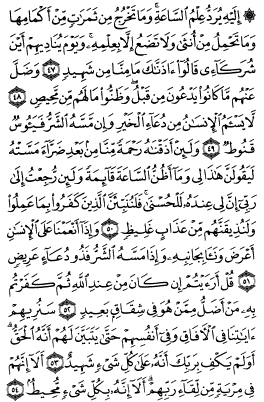 ۞ إِلَيْهِ يُرَدُّ عِلْمُ السَّاعَةِ ۚ وَمَا تَخْرُجُ مِن ثَمَرَٰتٍ مِّنْ أَكْمَامِهَا
وَمَا تَحْمِلُ مِنْ أُنثَىٰ وَلَا تَضَعُ إِلَّا بِعِلْمِهِ ۚ وَيَوْمَ يُنَادِيهِمْ أَيْنَ
شُرَكَآءِى قَالُوٓا۟ ءَاذَنَّـٰكَ مَا مِنَّا مِن شَهِيدٍ ۝٤٧ وَضَلَّ
عَنْهُم مَّا كَانُوا۟ يَدْعُونَ مِن قَبْلُ ۖ وَظَنُّوا۟ مَا لَهُم مِّن مَّحِيصٍ
۝٤٨ لَّا يَسْـَٔمُ الْإِنسَـٰنُ مِن دُعَآءِ الْخَيْرِ وَإِن مَّسَّهُ الشَّرُّ فَيَـُٔوسٌ
قَنُوطٌ ۝٤٩ وَلَئِنْ أَذَقْنَـٰهُ رَحْمَةً مِّنَّا مِنۢ بَعْدِ ضَرَّآءَ مَسَّتْهُ
لَيَقُولَنَّ هَـٰذَا لِى وَمَآ أَظُنُّ السَّاعَةَ قَآئِمَةً وَلَئِن رُّجِعْتُ إِلَىٰ
رَبِّىٓ إِنَّ لِى عِندَهُۥ لَلْحُسْنَىٰ ۚ فَلَنُنَبِّئَنَّ الَّذِينَ كَفَرُوا۟ بِمَا عَمِلُوا۟
وَلَنُذِيقَنَّهُم مِّنْ عَذَابٍ غَلِيظٍ ۝٥٠ وَإِذَآ أَنْعَمْنَا عَلَى الْإِنسَـٰنِ
أَعْرَضَ وَنَـَٔا بِجَانِبِهِۦ وَإِذَا مَسَّهُ الشَّرُّ فَذُو دُعَآءٍ عَرِيضٍ
۝٥١ قُلْ أَرَءَيْتُمْ إِن كَانَ مِنْ عِندِ اللَّهِ ثُمَّ كَفَرْتُم
بِهِۦ مَنْ أَضَلُّ مِمَّنْ هُوَ فِى شِقَاقٍۭ بَعِيدٍ ۝٥٢ سَنُرِيهِمْ
ءَايَـٰتِنَا فِى الْـَٔافَاقِ وَفِىٓ أَنفُسِهِمْ حَتَّىٰ يَتَبَيَّنَ لَهُمْ أَنَّهُ الْحَقُّ ۗ
أَوَلَمْ يَكْفِ بِرَبِّكَ أَنَّهُۥ عَلَىٰ كُلِّ شَىْءٍ شَهِيدٌ ۝٥٣ أَلَآ إِنَّهُمْ
فِى مِرْيَةٍ مِّن لِّقَآءِ رَبِّهِمْ ۗ أَلَآ إِنَّهُۥ بِكُلِّ شَىْءٍ مُّحِيطٌۢ ۝٥٤